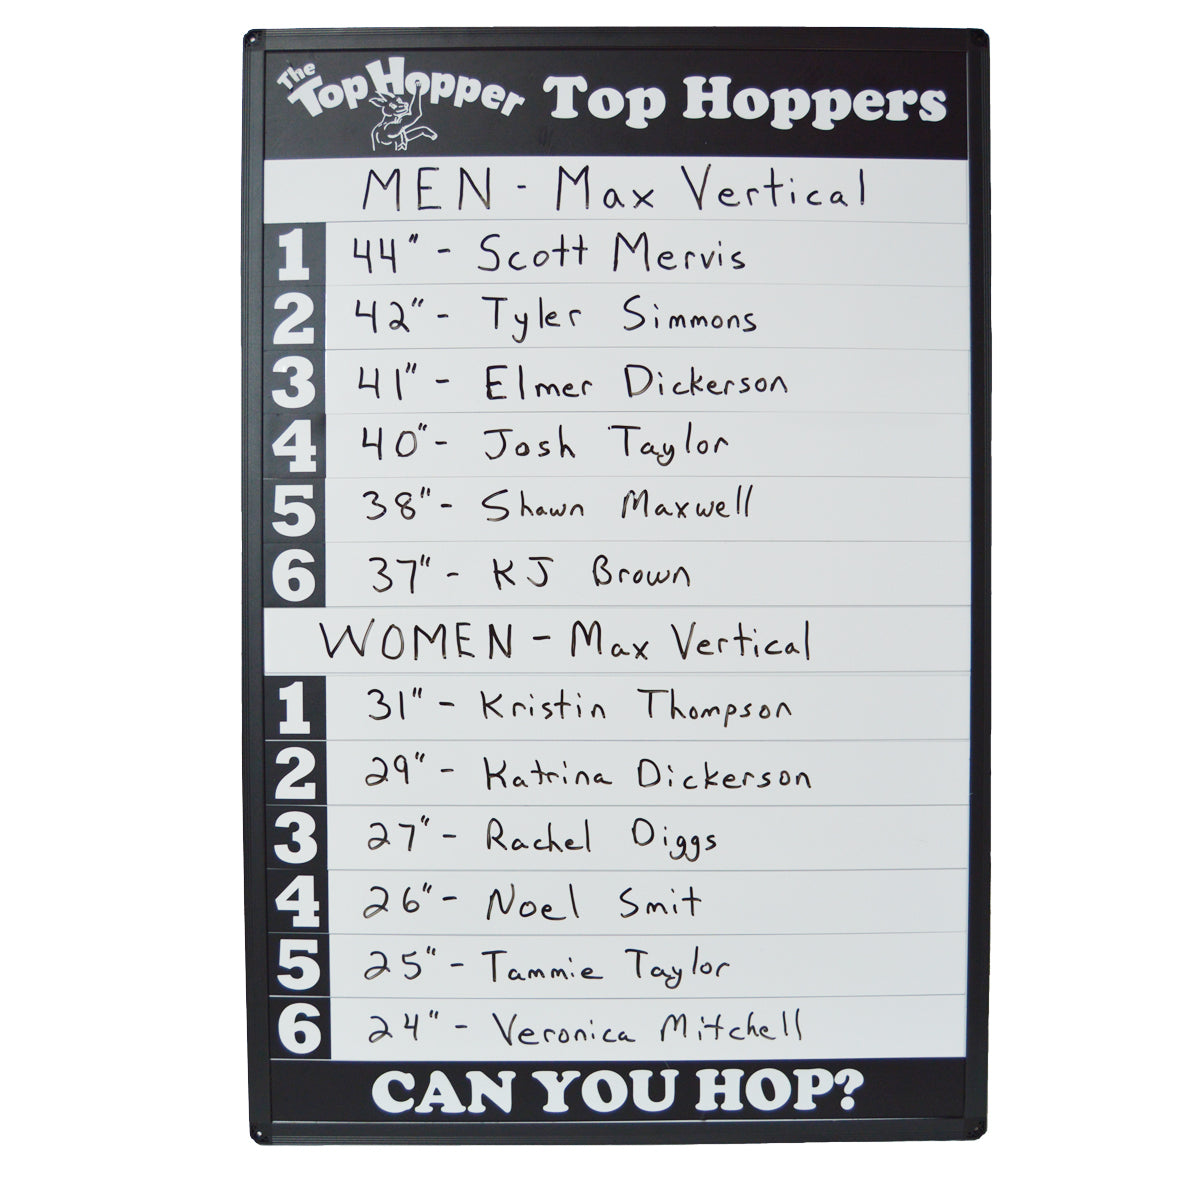 The Top Hopper Top Hoppers
MEN - Max Vertical
1 44" - Scott Mervis
2 42" - Tyler Simmons
3 41" - Elmer Dickerson
4 40" - Josh Taylor
5 38" - Shawn Maxwell
6 37" - KJ Brown
WOMEN - Max Vertical
1 31" - Kristin Thompson
2 29" - Katrina Dickerson
3 27" - Rachel Diggs
4 26" - Noel Smit
5 25" - Tammie Taylor
6 24" - Veronica Mitchell
CAN YOU HOP?